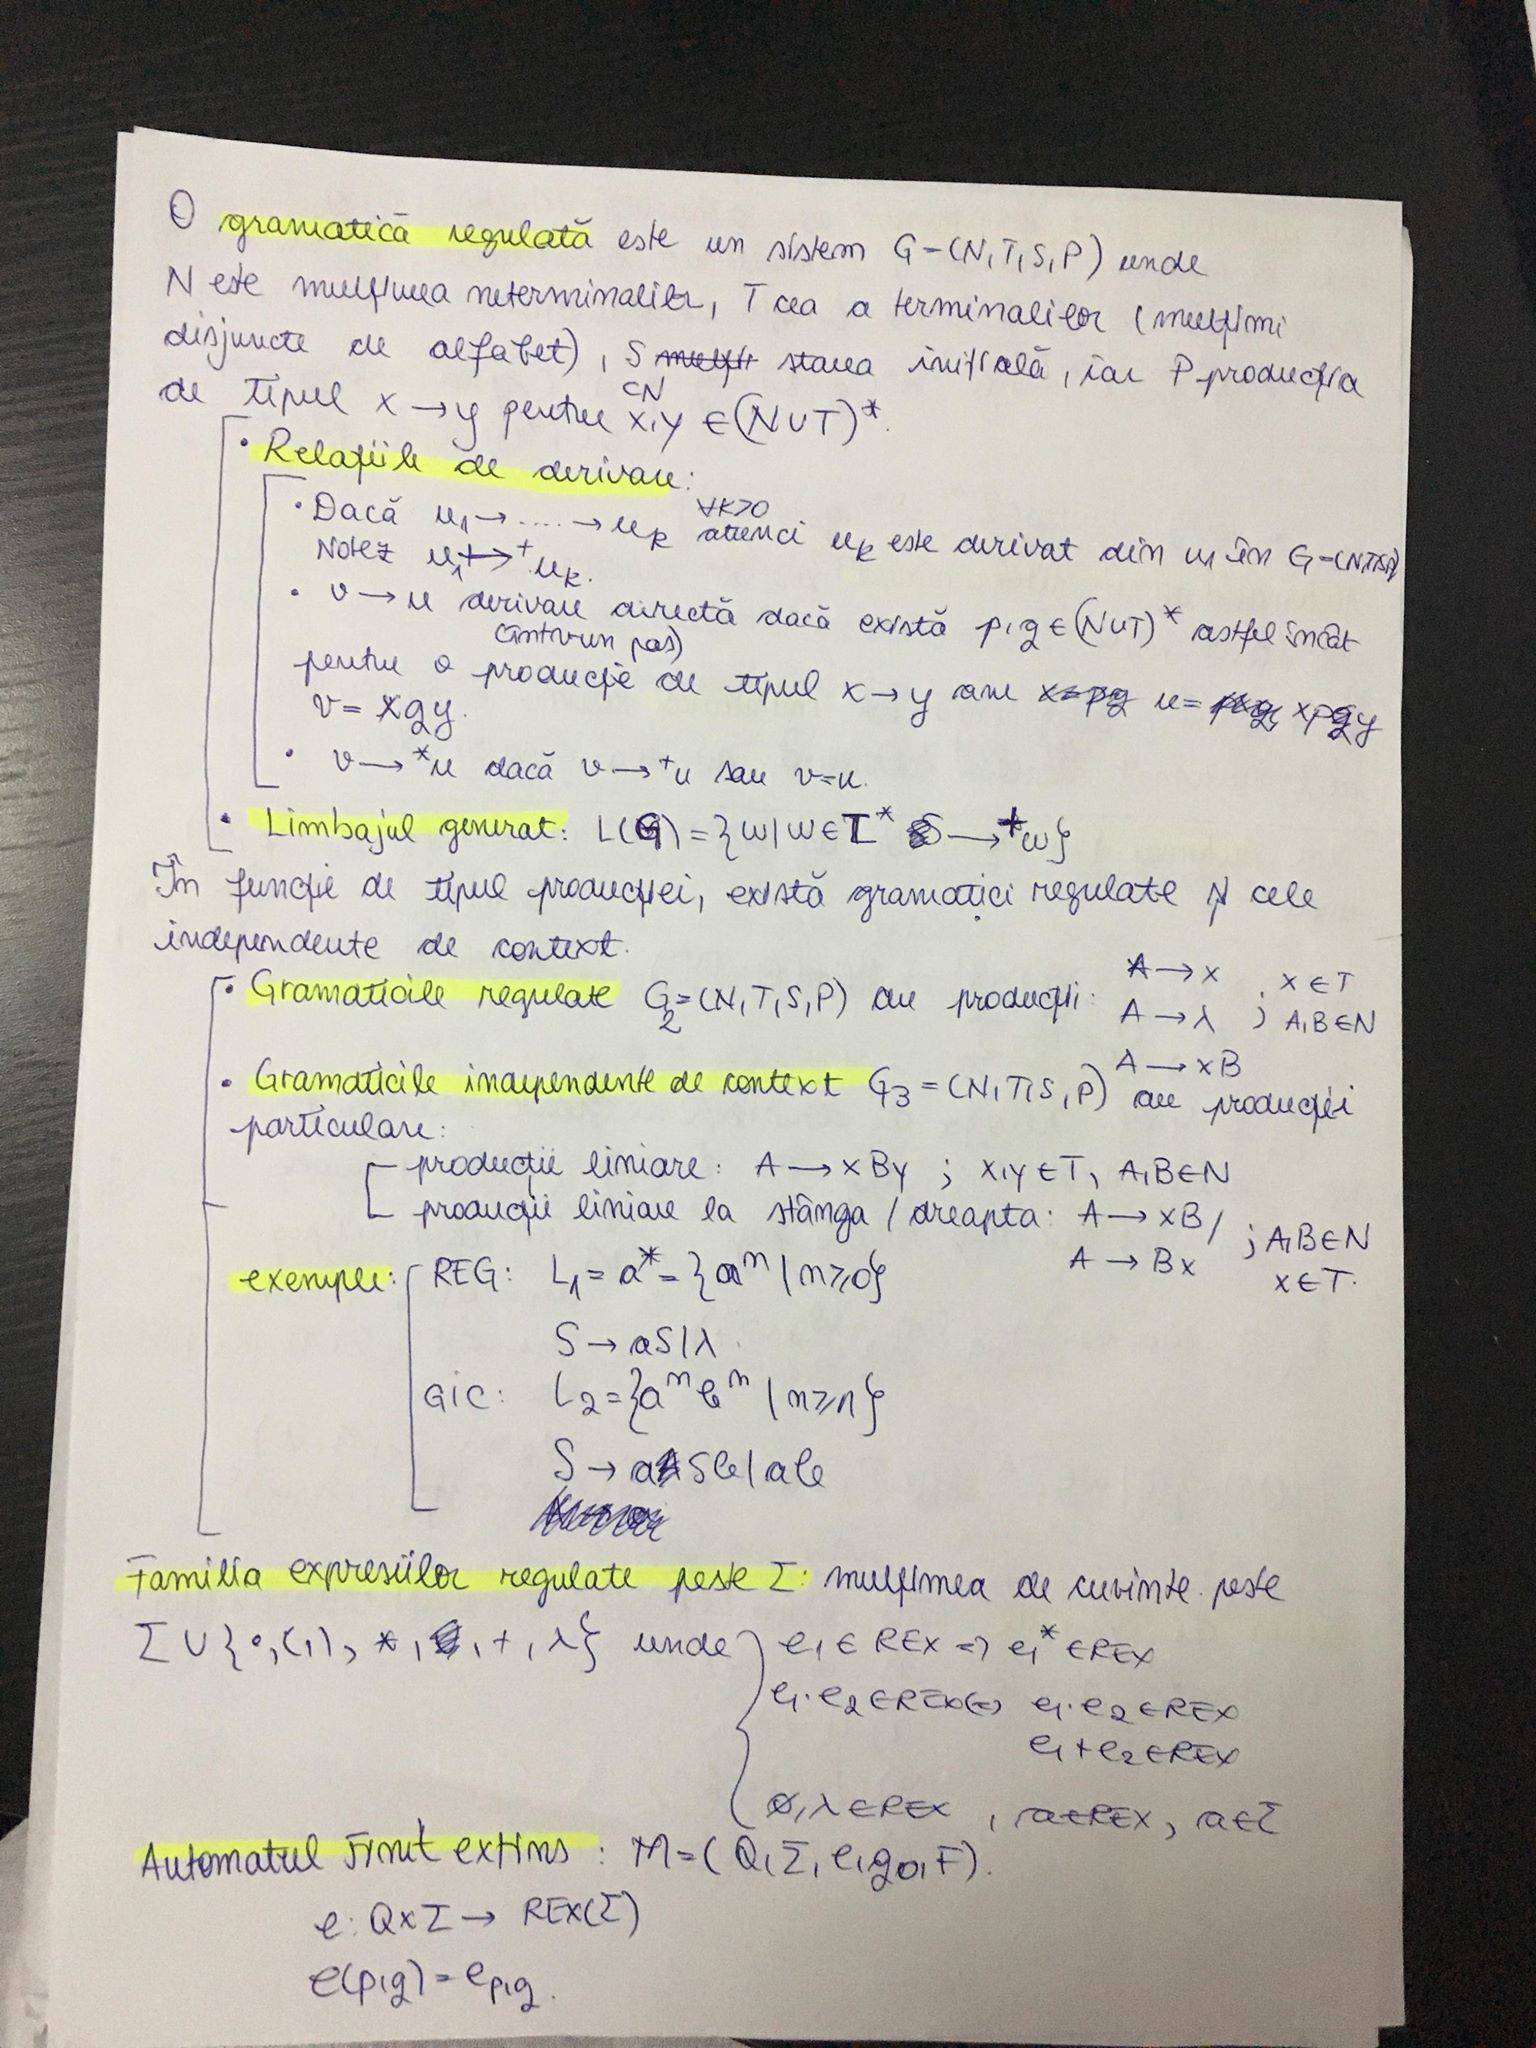 O gramatică regulată este un sistem G=(N,T,S,P) unde
N este mulțimea neterminalilor, T cea a terminalilor (mulțimi
disjuncte de alfabet), S starea inițială, iar P producția
⊂N
de tipul x → y pentru x,y ∈ (N∪T)*.
• Relațiile de derivare:
• Dacă u₁ → .... → u_k ∀k>0 atunci u_k este derivat din u₁ în G=(N,T,S,P)
Notez u₁ →⁺ u_k.
• v → u derivare directă dacă există p,q ∈ (N∪T)* astfel încât
(într-un pas)
pentru o producție de tipul x → y are u = xpqy
v = xqy.
• v →* u dacă v →⁺ u sau v=u.
• Limbajul generat: L(G) = {w | w ∈ Σ* S →⁺ w}
În funcție de tipul producției, există gramatici regulate și cele
independente de context.
• Gramaticile regulate G₂=(N,T,S,P) au producții: A → x , x ∈ T
A → λ ; A,B ∈ N
A → xB
• Gramaticile independente de context G₃ = (N,T,S,P) au producții
particulare:
producții liniare: A → xBy ; x,y ∈ T, A,B ∈ N
producții liniare la stânga / dreapta: A → xB / ; A,B ∈ N
A → Bx x ∈ T.
exemple: REG: L₁ = a* = {aⁿ | n≥0}
S → aS | λ
GIC: L₂ = {aⁿbⁿ | n≥n}
S → aSb | ab
Familia expresiilor regulate peste Σ: mulțimea de cuvinte peste
Σ ∪ {•, (, ), *, +, λ} unde e₁ ∈ REX => e₁* ∈ REX
e₁·e₂ ∈ REX (=) e₁·e₂ ∈ REX
e₁+e₂ ∈ REX
∅,λ ∈ REX , a ∈ REX, a ∈ Σ
Automatul Finit extins: M = (Q,Σ,e,q₀,F).
e: Q×Σ → REX(Σ)
e(p,q) = e_p,q.